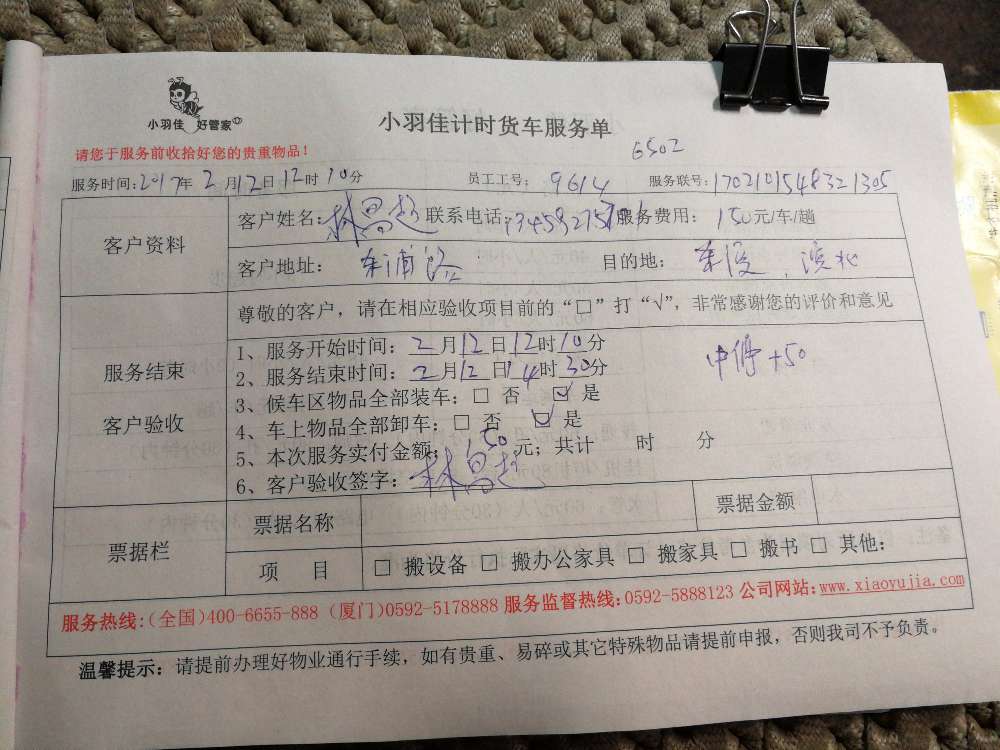 小羽佳 好管家
小羽佳计时货车服务单
6502
请您于服务前收拾好您的贵重物品！
服务时间:2017年2月12日12时10分 员工工号：9614 服务联号:1702101548321305
客户资料
客户姓名:林昌超 联系电话: 服务费用：150元/车/趟
客户地址： 目的地：
尊敬的客户，请在相应验收项目前的“□”打“√”，非常感谢您的评价和意见
服务结束
客户验收
1、服务开始时间：2月12日12时10分
2、服务结束时间：2月12日14时30分
中停+50
3、候车区物品全部装车：□ 否 ☑ 是
4、车上物品全部卸车：□ 否 ☑ 是
5、本次服务实付金额：150元；共计 时 分
6、客户验收签字：林昌超
票据栏
票据名称 票据金额
项 目 □ 搬设备 □ 搬办公家具 □ 搬家具 □ 搬书 □ 其他：
服务热线:(全国)400-6655-888 (厦门)0592-5178888 服务监督热线:0592-5888123 公司网站:www.xiaoyujia.com
温馨提示：请提前办理好物业通行手续，如有贵重、易碎或其它特殊物品请提前申报，否则我司不予负责。